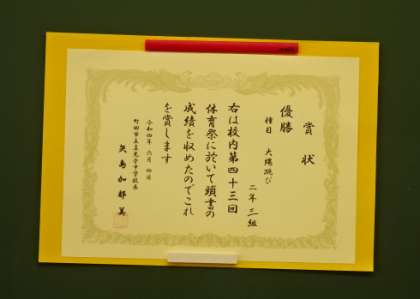 賞状
優勝
種目 大縄跳び
二年三組
右は校内第四十三回
体育祭に於いて頭書の
成績を収めたのでこれ
を賞します
令和四年 六月 四日
町田市立
中学校長